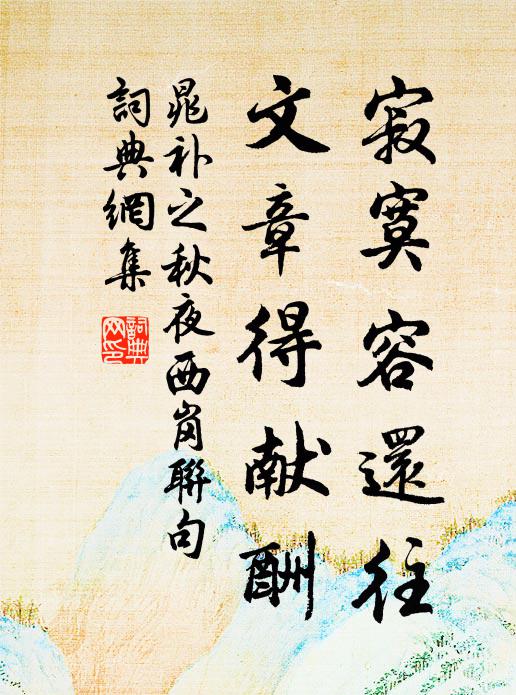 寂寞容還往
文章得献酬
晁补之秋夜西岗聯句
詞典網集
詞典网印